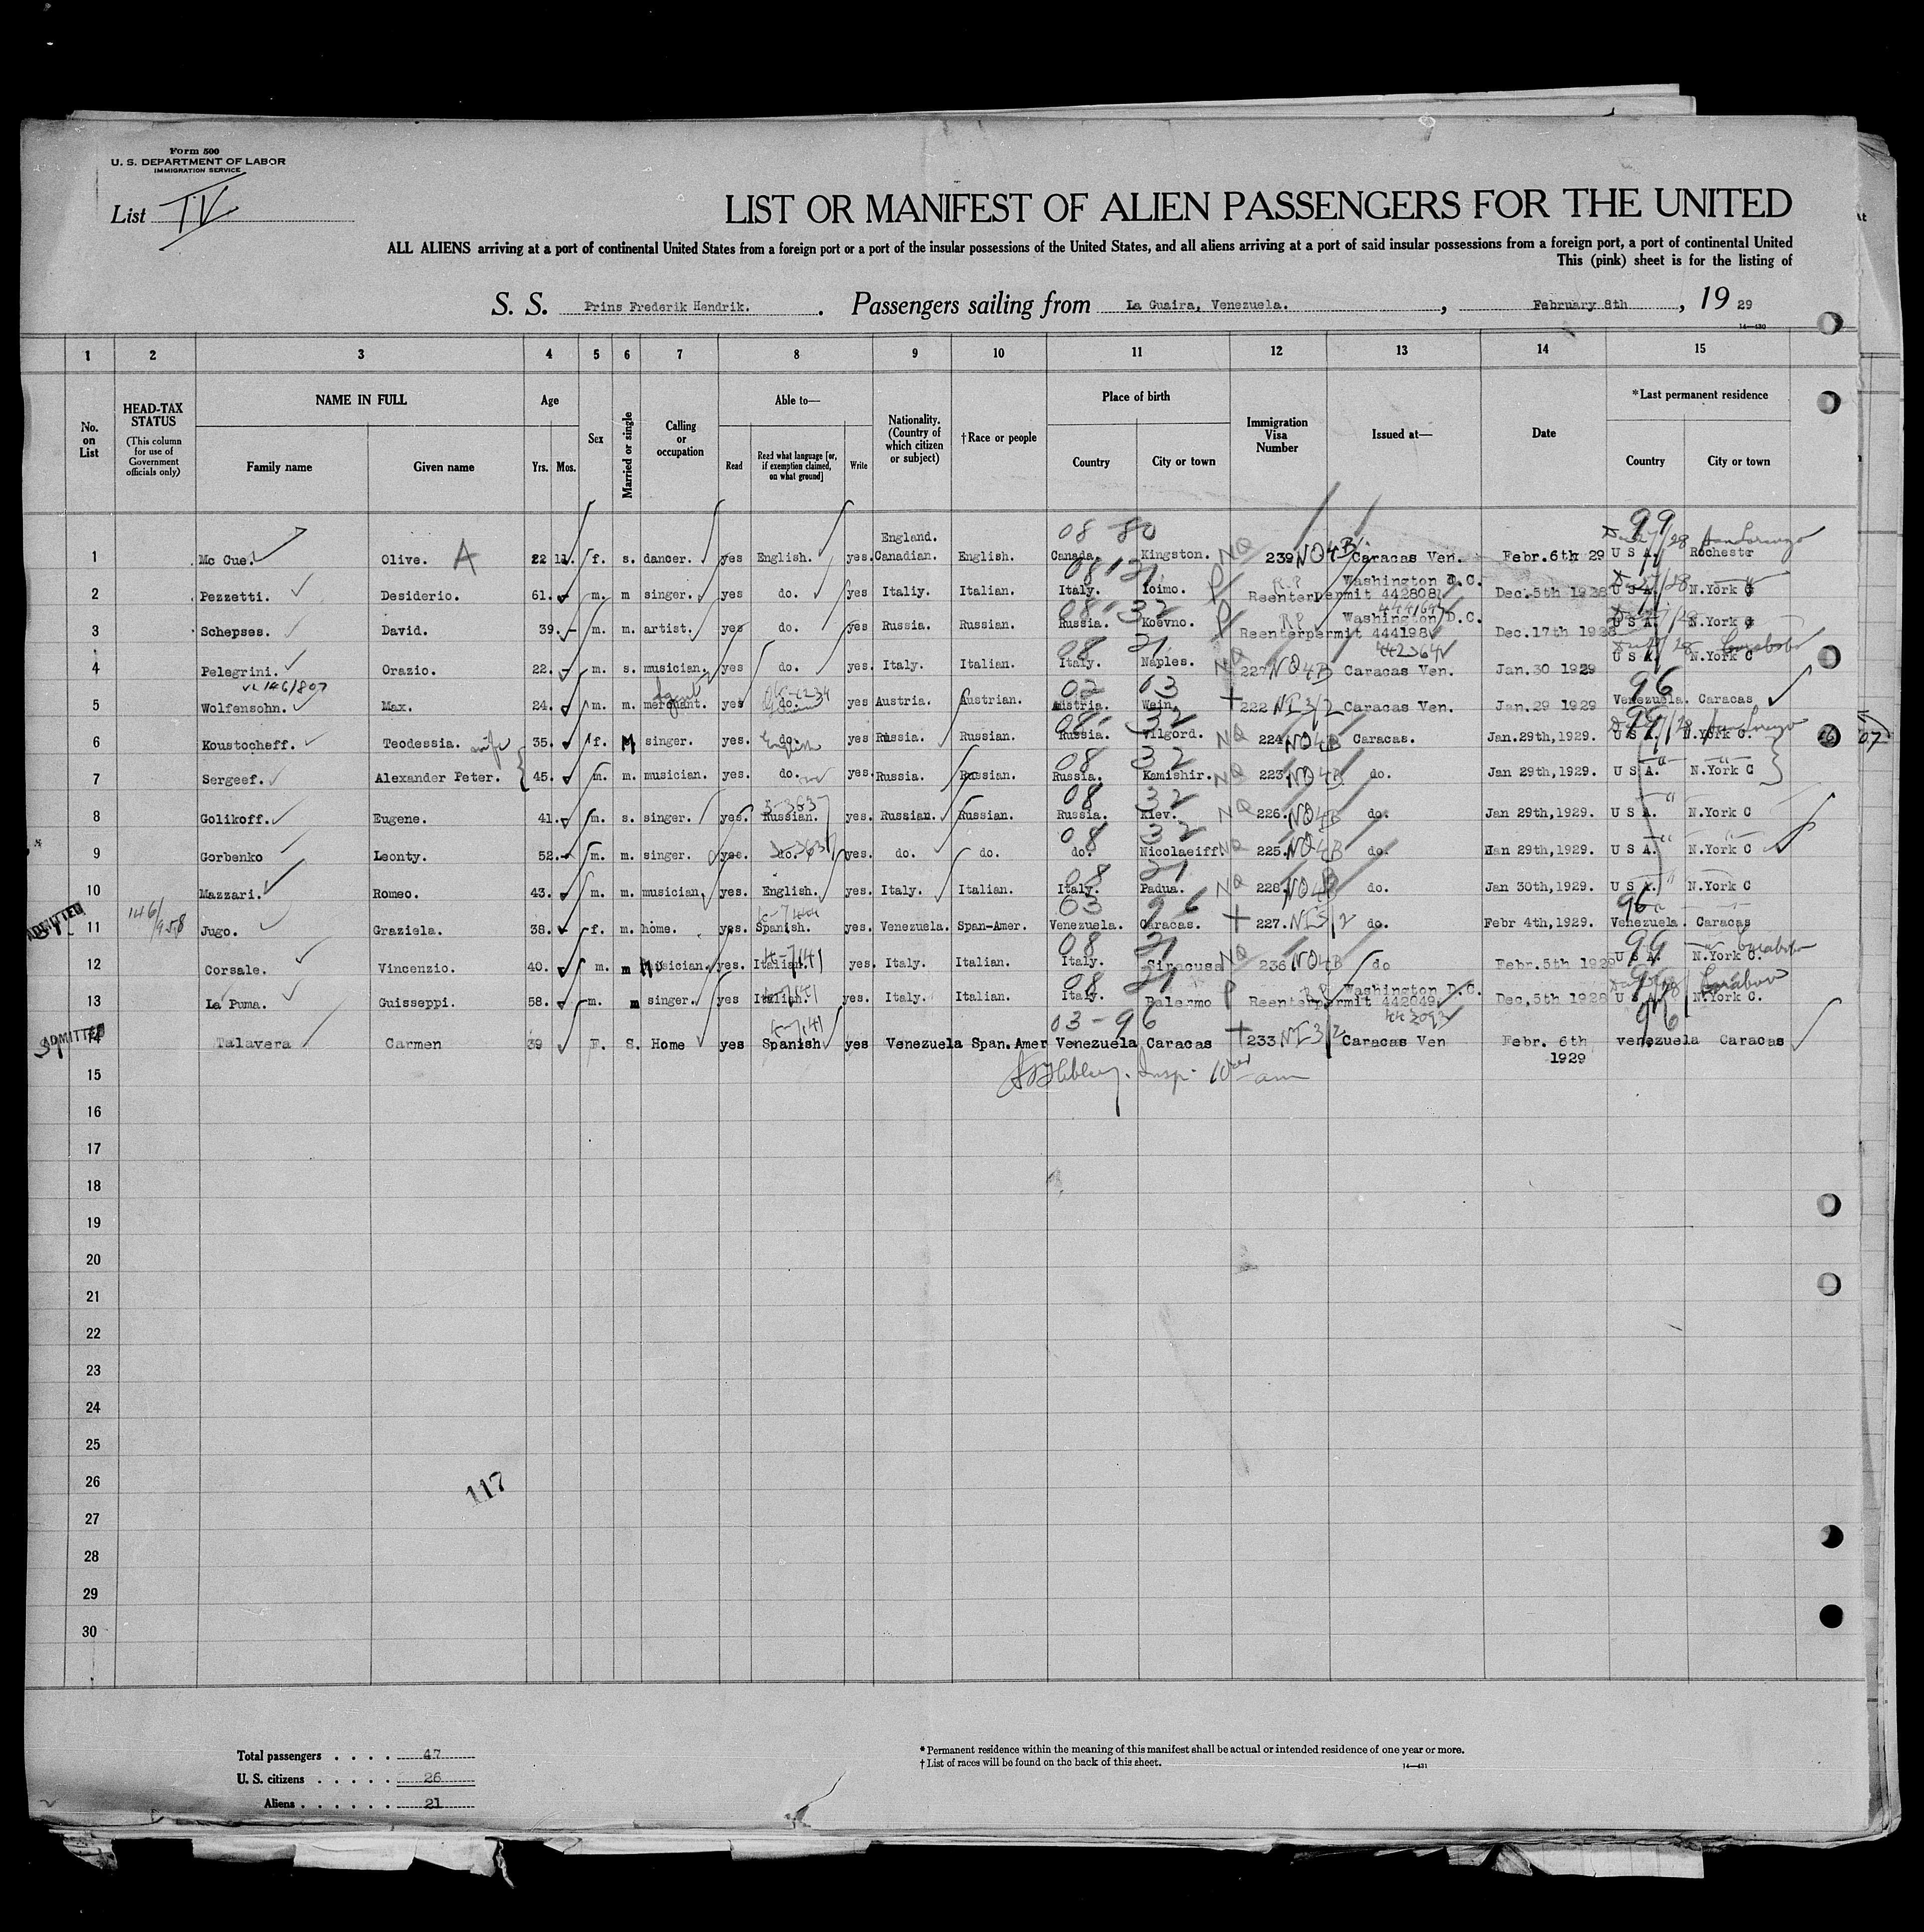 Form 500
U. S. DEPARTMENT OF LABOR
IMMIGRATION SERVICE
List IV
LIST OR MANIFEST OF ALIEN PASSENGERS FOR THE UNITED
ALL ALIENS arriving at a port of continental United States from a foreign port or a port of the insular possessions of the United States, and all aliens arriving at a port of said insular possessions from a foreign port, a port of continental United
This (pink) sheet is for the listing of
S. S. Prins Frederik Hendrik. Passengers sailing from La Guaira, Venezuela. , February 8th , 19 29
14—430
1 2 3 4 5 6 7 8 9 10 11 12 13 14 15
No. on List
HEAD-TAX STATUS (This column for use of Government officials only)
NAME IN FULL Family name Given name
Age Yrs. Mos.
Sex
Married or single
Calling or occupation
Able to— Read Read what language [or, if exemption claimed, on what ground] Write
Nationality. (Country of which citizen or subject)
†Race or people
Place of birth Country City or town
Immigration Visa Number
Issued at—
Date
*Last permanent residence Country City or town
1 Mc Cue. Olive. A 22 11 f. s. dancer. yes English. yes. England. Canadian. English. 08 80 Canada. Kingston. NQ 239 NQ4B Caracas Ven. Febr.6th 29 99 U S A. Rochester San Lorenzo
2 Pezzetti. Desiderio. 61. m. m singer. yes do. yes Italiy. Italian. 08 21 Italy. Toimo. P R.P Reenterpermit 442808 Washington D.C. Dec.5th 1928 U S A. N.York C
3 Schepses. David. 39.- m. m. artist. yes do. yes Russia. Russian. 08 32 Russia. Koevno. P RP Reenterpermit 444198 Washington D.C. 444169 Dec.17th 1928 U S A. N.York C
4 Pelegrini. Orazio. 22. m. s. musician. yes do. yes. Italy. Italian. 08 21 Italy. Naples. NQ 227 NQ4B Caracas Ven. 442364 Jan.30 1929 U S A. N.York C Carabobo
5 Wolfensohn. 146/807 Max. 24. m. m. merchant. Agent yes do. German yes Austria. Austrian. 02 03 Austria. Wein. + 222 NI3/2 Caracas Ven. Jan.29 1929 96 Venezuela. Caracas
6 Koustocheff. Teodessia. wife 35. f. M singer. yes. do. English yes Russia. Russian. 08 32 Russia. Vilgord. NQ 224 NQ4B Caracas. Jan.29th,1929. 99 U S A. N.York C. San Lorenzo
7 Sergeef. Alexander Peter. 45. m. m. musician. yes. do. yes. Russia. Russian. 08 32 Russia. Kamishir. NQ 223 NQ4B do. Jan 29th,1929. U S A. N.York C
8 Golikoff. Eugene. 41. m. s. singer. yes. Russian. yes. Russian. Russian. 08 32 Russia. Kiev. NQ 226. NQ4B do. Jan 29th,1929. U S A. N.York C
9 Gorbenko Leonty. 52. m. m. singer. yes. do. yes. do. do. 08 32 do. Nicolaeiff. NQ 225. NQ4B do. Han 29th,1929. U S A. N.York C
10 Mazzari. Romeo. 43. m. m. musician yes. English. yes. Italy. Italian. 08 21 Italy. Padua. NQ 228. NQ4B do. Jan 30th,1929. U S A. N.York C
ADMITTED 11 146/958 Jugo. Graziela. 38. f. m. home. yes. Spanish. yes. Venezuela. Span-Amer. 03 96 Venezuela. Caracas. + 227. NI3/2 do. Febr 4th,1929. 96 Venezuela. Caracas
12 Corsale. Vincenzio. 40. m. m Musician. yes. Italian. yes. Italy. Italian. 08 21 Italy. Siracusa NQ 236 NQ4B do Febr.5th 1929 99 U S A. N.York C. Carabobo
13 La Puma. Guisseppi. 58. m. m singer. yes Italian. yes. Italy. Italian. 08 21 Italy. Palermo P RP Reenterpermit 442049 Washington D.C. 443093 Dec,5th 1928 U S A. N.York C. Carabobo
ADMITTED 14 Talavera Carmen 39 F. S. Home yes Spanish yes Venezuela Span.Amer 03-96 Venezuela Caracas + 233 NI3/2 Caracas Ven Febr. 6th 1929 96 venezuela Caracas
15
16
17
18
19
20
21
22
23
24
25
26
27
28
29
30
117
Total passengers . . . . 47
U. S. citizens . . . . . 26
Aliens . . . . . . 21
* Permanent residence within the meaning of this manifest shall be actual or intended residence of one year or more.
† List of races will be found on the back of this sheet.
14—431